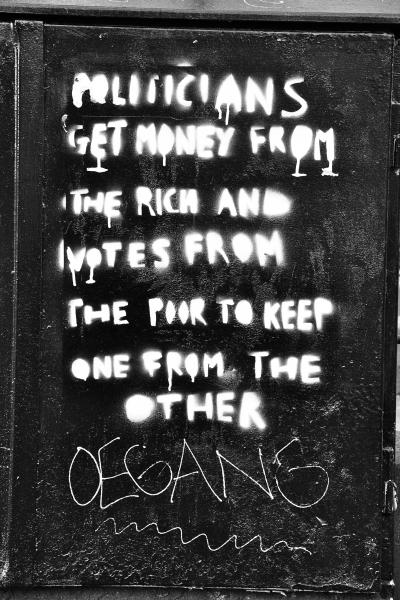 POLITICIANS
GET MONEY FROM
THE RICH AND
VOTES FROM
THE POOR TO KEEP
ONE FROM THE
OTHER
OEGANG